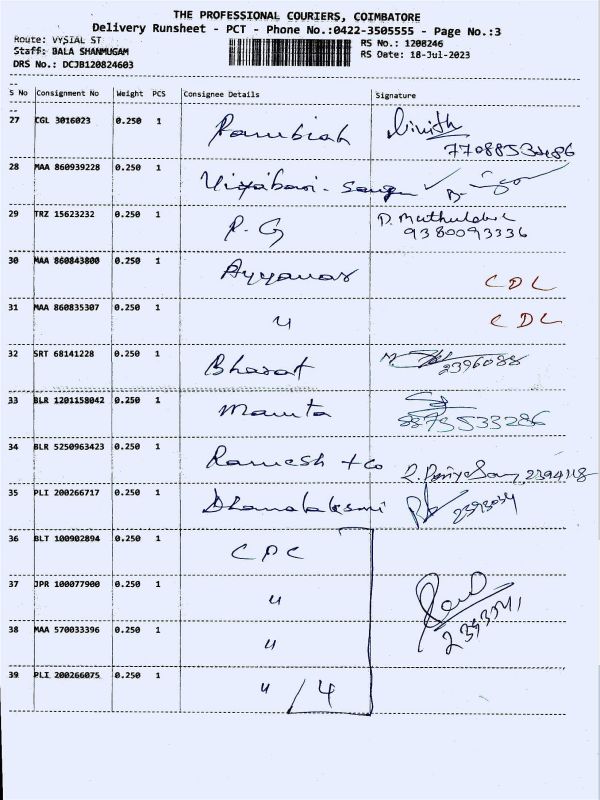 THE PROFESSIONAL COURIERS, COIMBATORE
Delivery Runsheet - PCT - Phone No.:0422-3505555 - Page No.:3
Route: VYSIAL ST RS No.: 1208246
Staff: BALA SHANMUGAM RS Date: 18-Jul-2023
DRS No.: DCJB120824603
S No Consignment No Weight PCS Consignee Details Signature
27 CGL 3016023 0.250 1 Rambiah Vinith
28 MAA 860939228 0.250 1
29 TRZ 15623232 0.250 1 P. G D. Muthulabel
9380093336
30 MAA 860843800 0.250 1 Ayyanar CDL
31 MAA 860835307 0.250 1 " CDL
32 SRT 68141228 0.250 1 Bharat 2396088
33 BLR 1201158042 0.250 1 Mamta
8873533286
34 BLR 5250963423 0.250 1 Ramesh + Co
35 PLI 200266717 0.250 1 Dhanalaksmi
36 BLT 100902894 0.250 1 CPC
37 JPR 100077900 0.250 1 "
38 MAA 570033396 0.250 1 "
39 PLI 200266075 0.250 1 " / 4